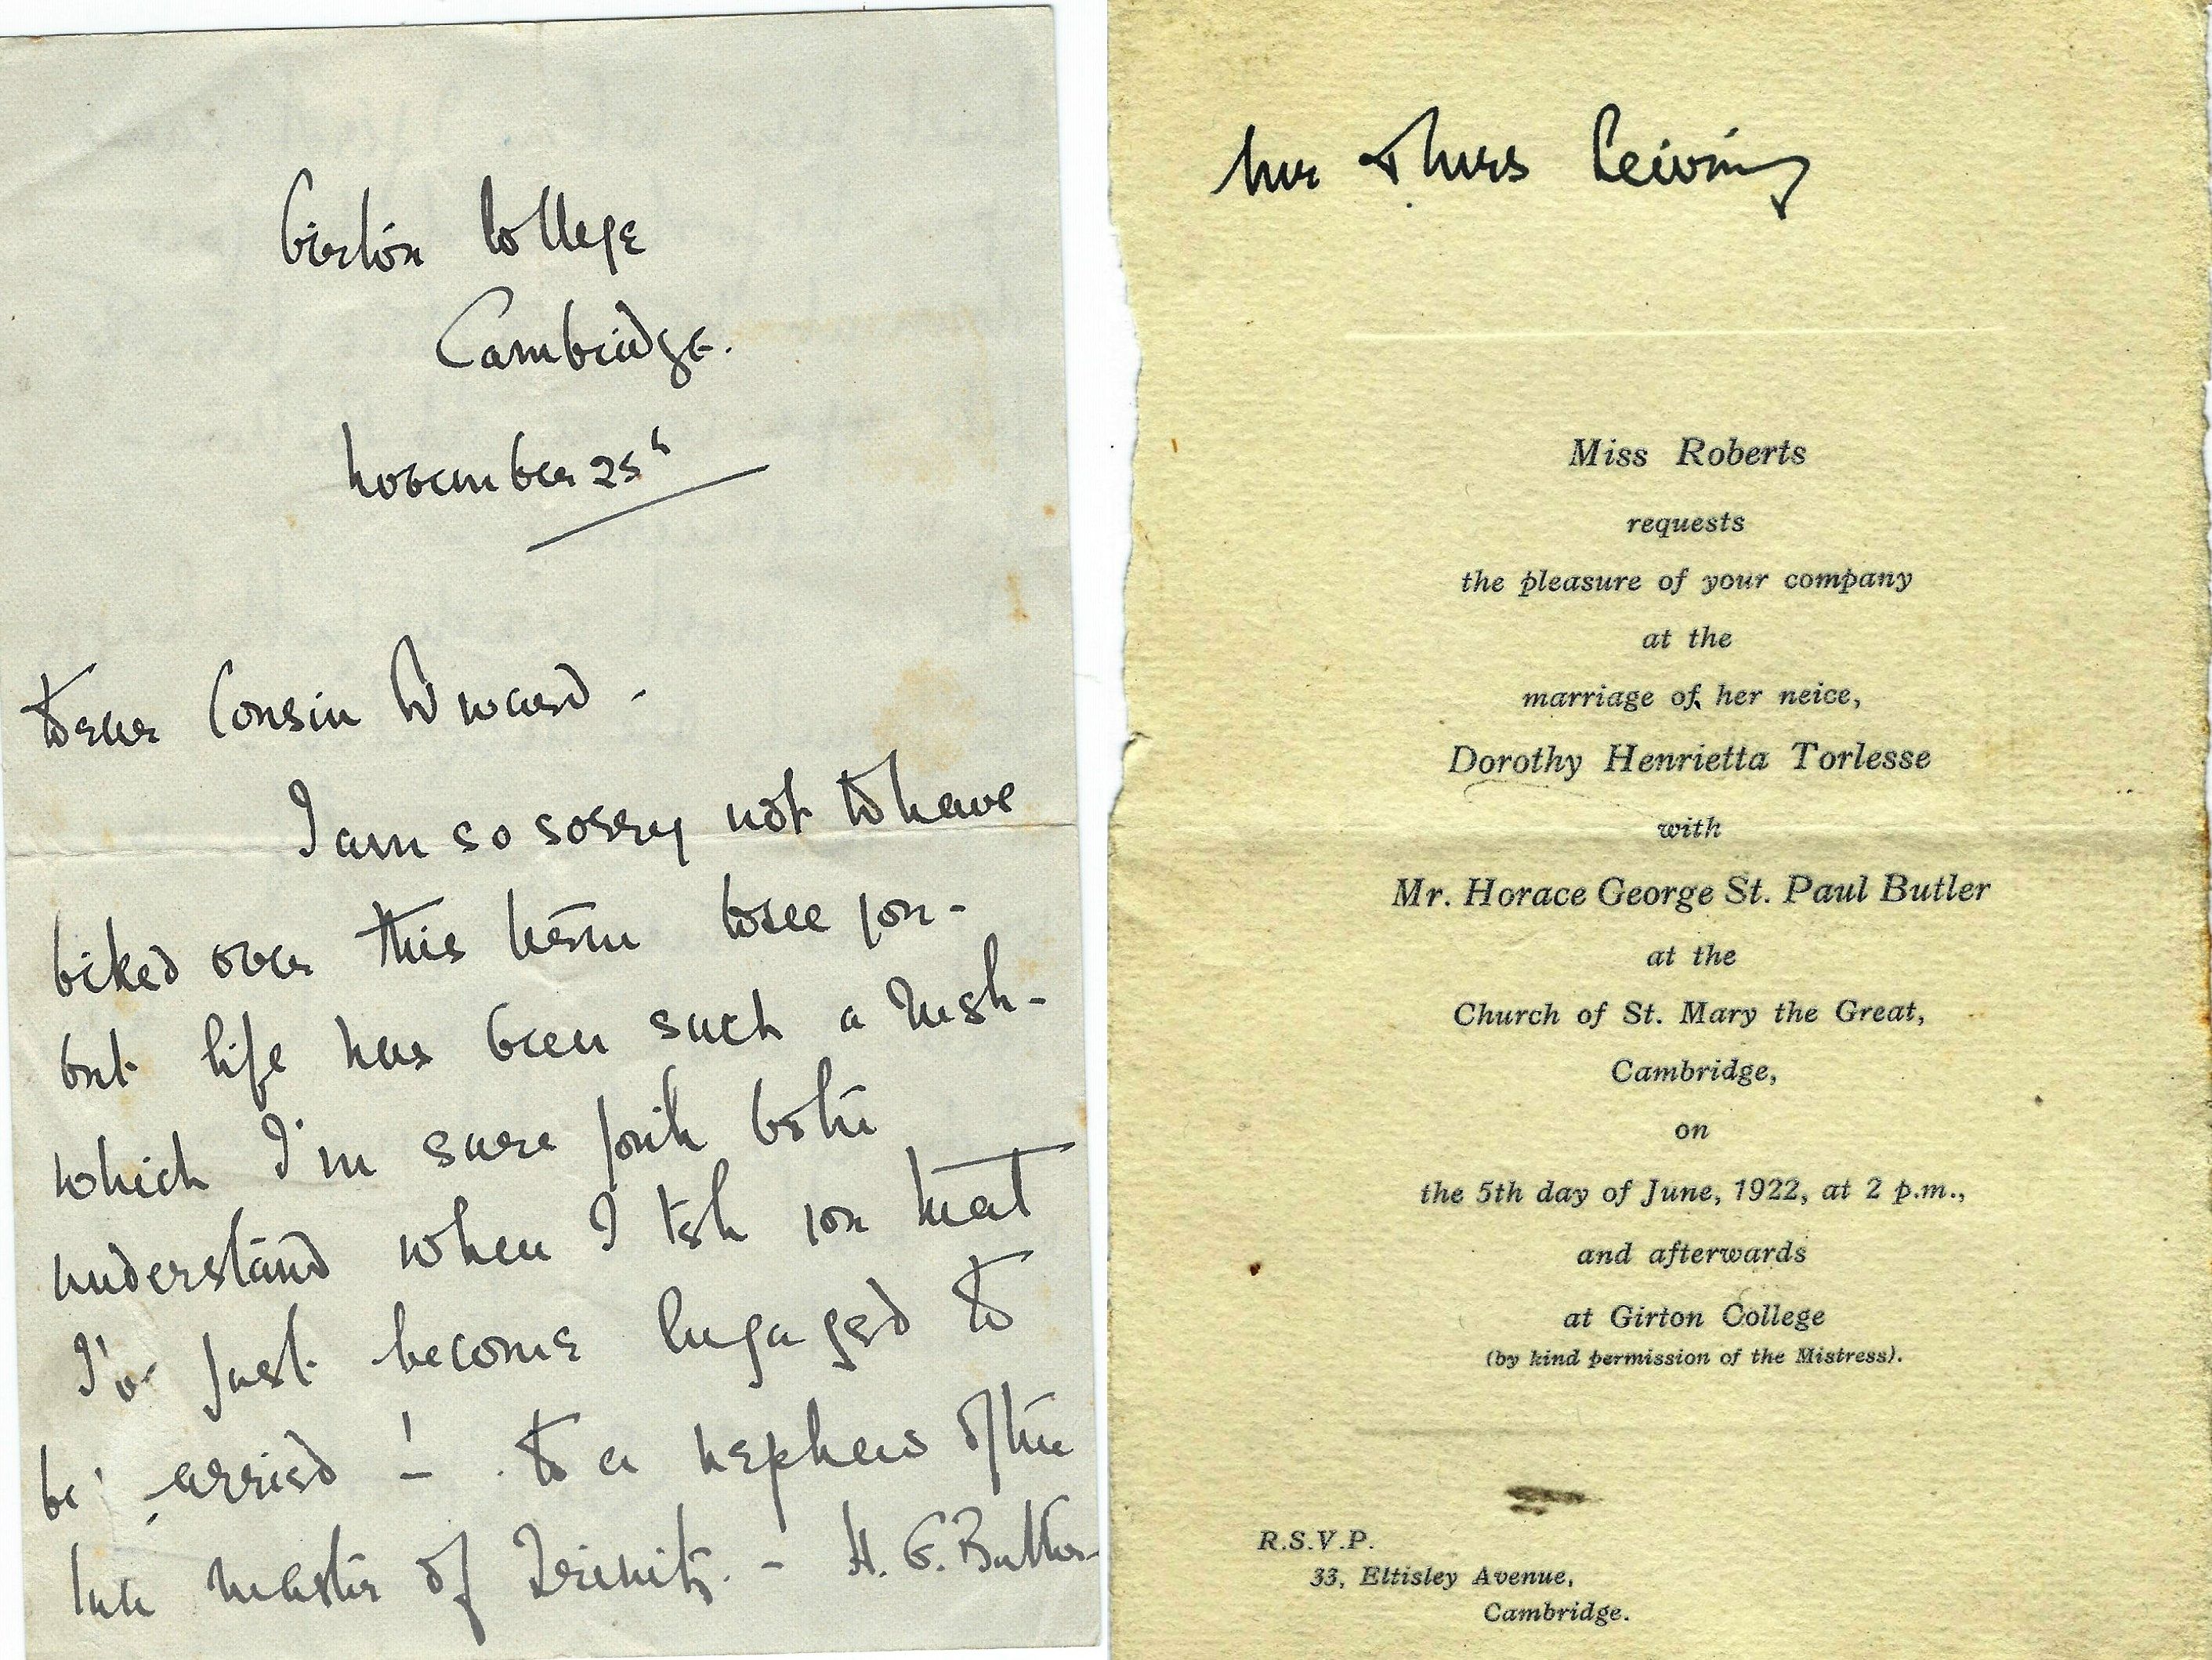 Girton College
Cambridge.
November 25th
Dear Cousin Edward -
I am so sorry not to have
biked over this term to see you -
but life has been such a rush -
which I'm sure you'll both
understand when I tell you that
I've just become engaged to
be married ! - to a nephew of the
late master of Trinity. - H. G. Butler -
Mr & Mrs
Miss Roberts
requests
the pleasure of your company
at the
marriage of her neice,
Dorothy Henrietta Torlesse
with
Mr. Horace George St. Paul Butler
at the
Church of St. Mary the Great,
Cambridge,
on
the 5th day of June, 1922, at 2 p.m.,
and afterwards
at Girton College
(by kind permission of the Mistress).
R.S.V.P.
33, Eltisley Avenue,
Cambridge.